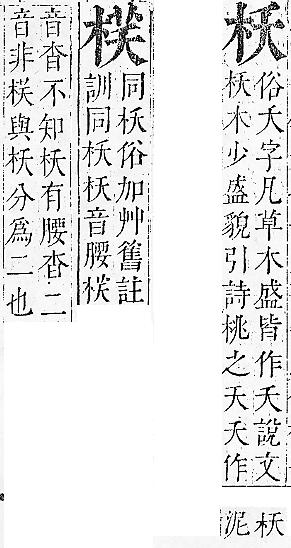 枖
俗夭字凡草木盛皆作夭說文
枖木少盛貌引詩桃之夭夭作
枖
泥
同枖俗加艸舊註
訓同枖枖音腰
音杳不知枖有腰杳二
音非與枖分爲二也